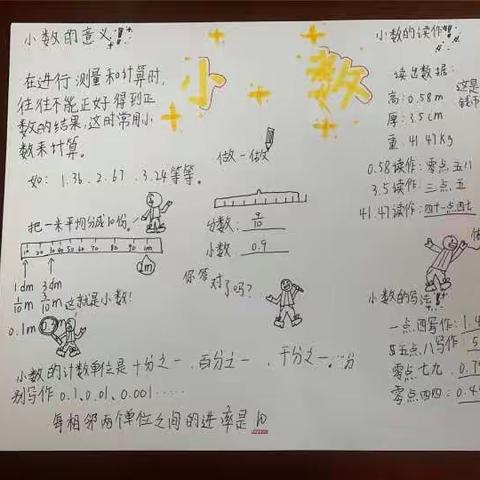 小数的意义!!
在进行测量和计算时,
往往不能正好得到正
数的结果,这时常用小
数来计算。
如: 1.36、2.67、3.24等等。
把一米平均分成10份。
10 20 30 40 50 60 70 80 90 1m
1m
1dm 3dm
1/10m 3/10m 这就是小数!
0.1m
小数
做一做
分数: 9/10
小数 0.9
你答对了吗?
小数的读作!!
读出数据:
高: 0.58m
厚: 3.5cm
重: 41.47kg
这是
钱币
0.58读作: 零点五八
3.5读作: 三点五
41.47读作: 四十一点四七
小数的写法!!
一点四写作: 1.4
五点八写作: 5
零点七九 0.7
零点四四: 0.4
小数的计数单位是十分之一、百分之一、千分之一……分
别写作0.1、0.01、0.001……
每相邻两个单位之间的进率是10